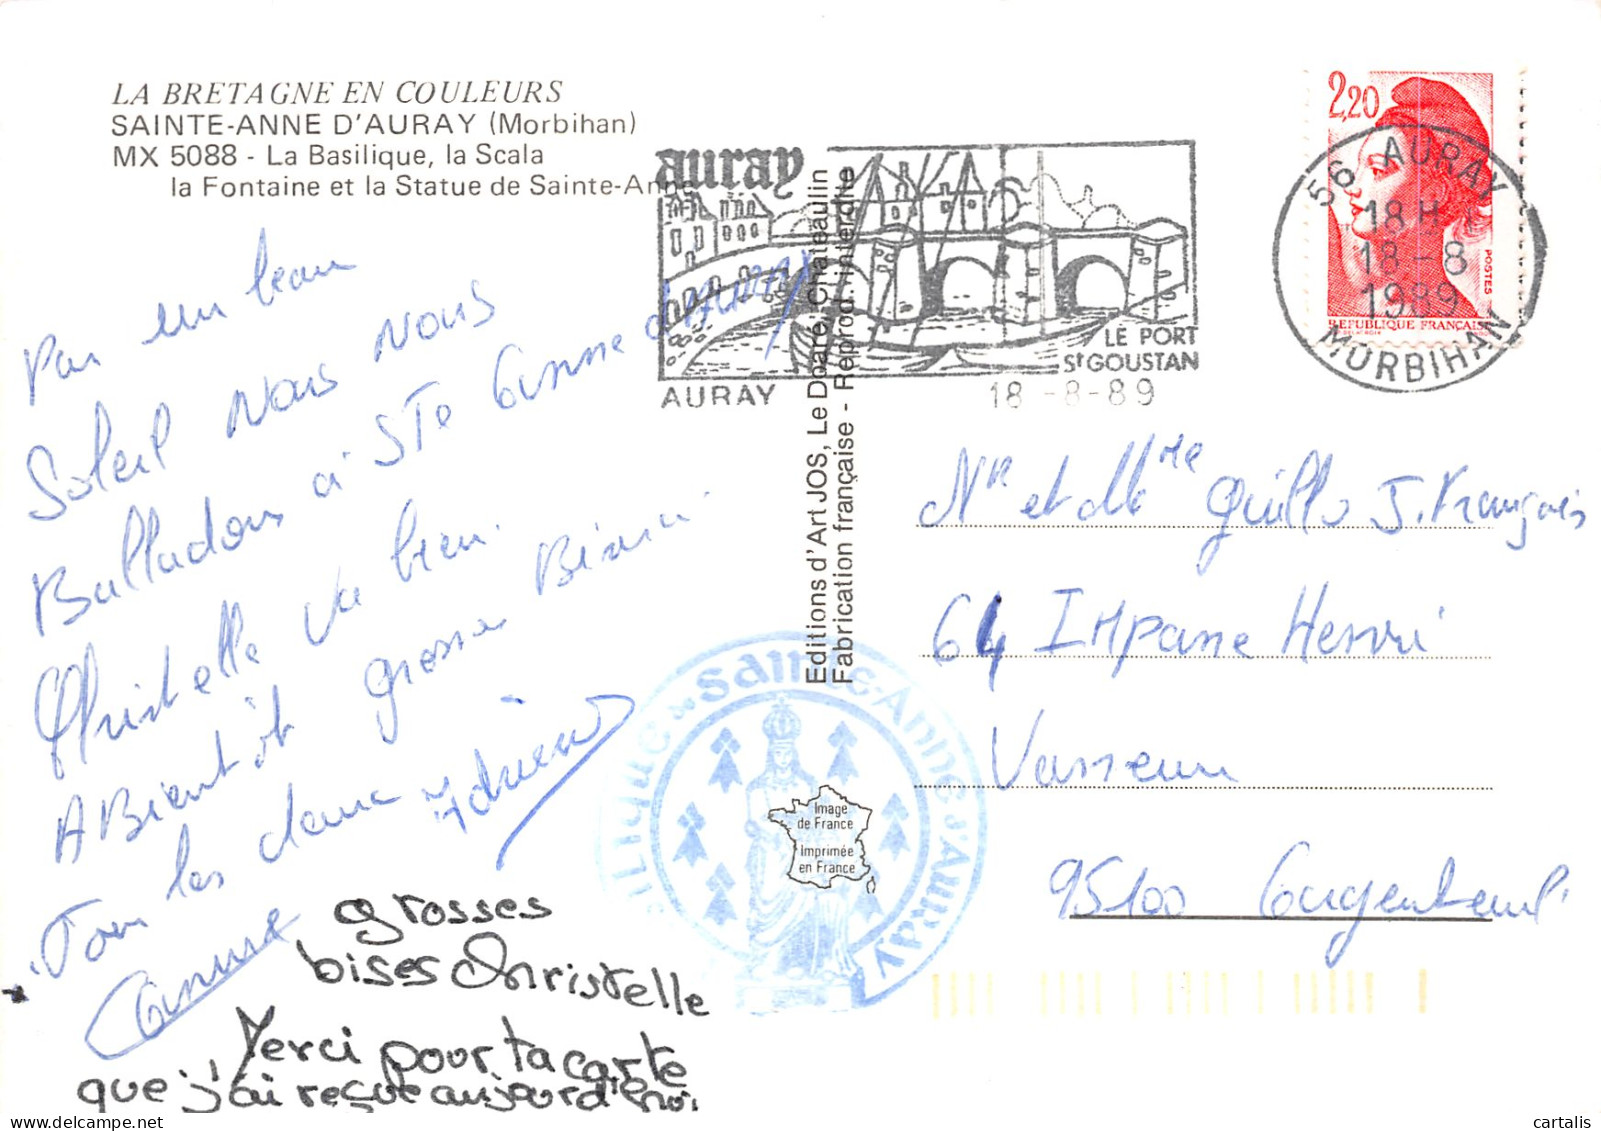 LA BRETAGNE EN COULEURS
SAINTE-ANNE D'AURAY (Morbihan)
MX 5088 - La Basilique, la Scala
la Fontaine et la Statue de Sainte-Anne
auray
LE PORT
St GOUSTAN
AURAY
18-8-89
2,20
POSTES
REPUBLIQUE FRANÇAISE
56 AURAY
18 H
18-8
1989
MORBIHAN
Par un beau
Soleil nous nous
Balladons à Ste Anne d'AURAY
Christelle va bien
A Bientôt grosses Bises
Tous les deux Adrien
Anna
grosses
bises Christelle
Merci pour ta carte
que j'ai reçue aujourd'hui
Editions d'Art JOS, Le Doaré, Chateaulin
Fabrication française - Reprod. interdite
Basilique de Sainte-Anne d'Auray
Image
de France
Imprimée
en France
Mr et Mme Guillo J. François
64 Impasse Henri
Vasseur
95100 Argenteuil
cartalis